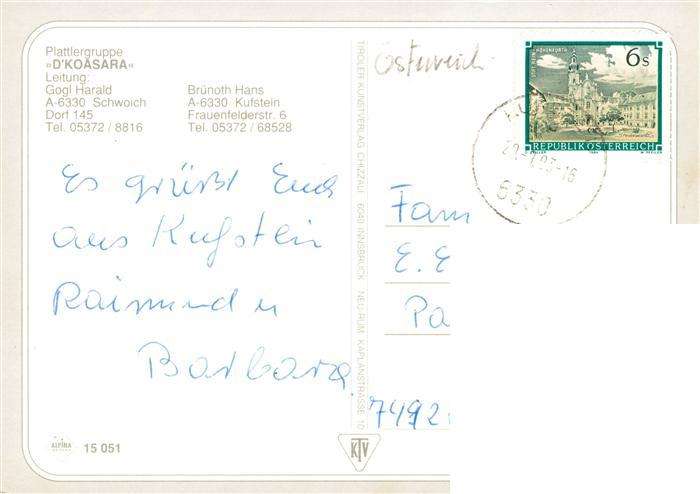 Plattlergruppe
»D'KOASARA«
Leitung:
Gogl Harald
A-6330 Schwoich
Dorf 145
Tel. 05372 / 8816
Brünoth Hans
A-6330 Kufstein
Frauenfelderstr. 6
Tel. 05372 / 68528
Es grüßt Euch
aus Kufstein
Raimund u
Barbara
ALPINA
15 051
TIROLER KUNSTVERLAG CHIZZALI 6040 INNSBRUCK NEU-RUM KAPLANSTRASSE 10
KTV
Österreich
6 S
REPUBLIK ÖSTERREICH
6330
Fam
E. E
Pa
7492